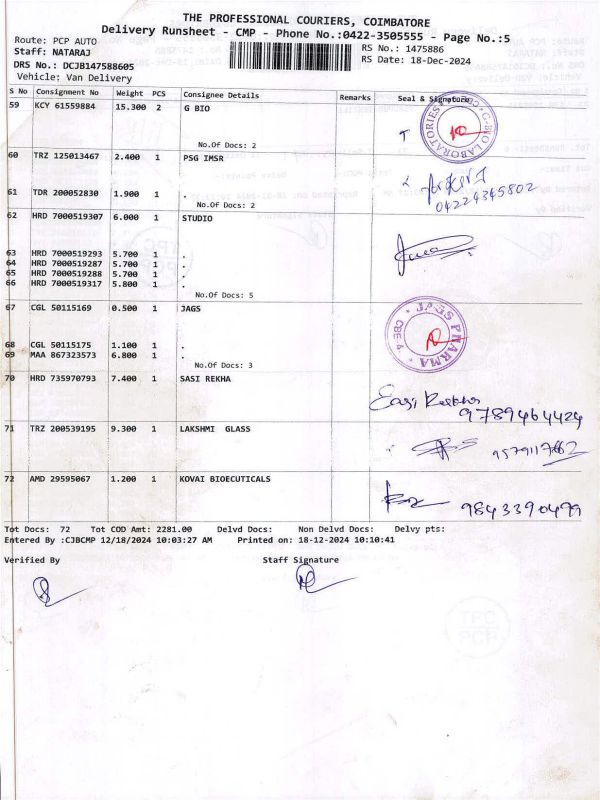 THE PROFESSIONAL COURIERS, COIMBATORE
Delivery Runsheet - CMP - Phone No.:0422-3505555 - Page No.:5
Route: PCP AUTO
Staff: NATARAJ
RS No.: 1475886
DRS No.: DCJB147588605
RS Date: 18-Dec-2024
Vehicle: Van Delivery
S No Consignment No Weight PCS Consignee Details Remarks Seal & Signature
59 KCY 61559884 15.300 2 G BIO
G-BIO LABORATORIES
No.Of Docs: 2
60 TRZ 125013467 2.400 1 PSG IMSR
61 TDR 200052830 1.900 1 .
04224345802
No.Of Docs: 2
62 HRD 7000519307 6.000 1 STUDIO
63 HRD 7000519293 5.700 1 .
64 HRD 7000519287 5.700 1 .
65 HRD 7000519288 5.700 1 .
66 HRD 7000519317 5.800 1 .
No.Of Docs: 5
67 CGL 50115169 0.500 1 JAGS
JAGS PHARMA
CBE-4
68 CGL 50115175 1.100 1 .
69 MAA 867323573 6.800 1 .
No.Of Docs: 3
70 HRD 735970793 7.400 1 SASI REKHA
Sasi Rekha
9789464424
71 TRZ 200539195 9.300 1 LAKSHMI GLASS
72 AMD 29595067 1.200 1 KOVAI BIOECUTICALS
9843390499
Tot Docs: 72 Tot COD Amt: 2281.00 Delvd Docs: Non Delvd Docs: Delvy pts:
Entered By :CJBCMP 12/18/2024 10:03:27 AM Printed on: 18-12-2024 10:10:41
Verified By Staff Signature